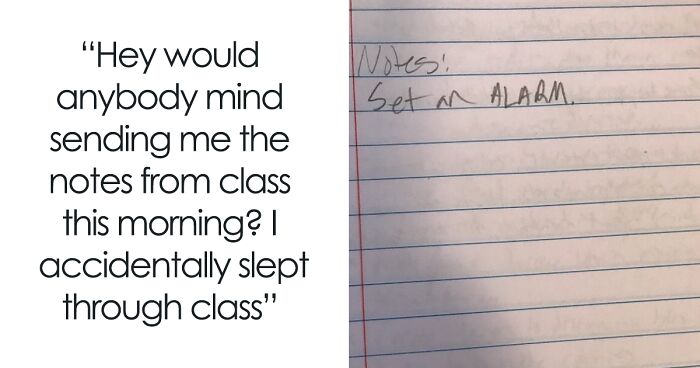 “Hey would
anybody mind
sending me the
notes from class
this morning? I
accidentally slept
through class”
Notes:
Set an ALARM.